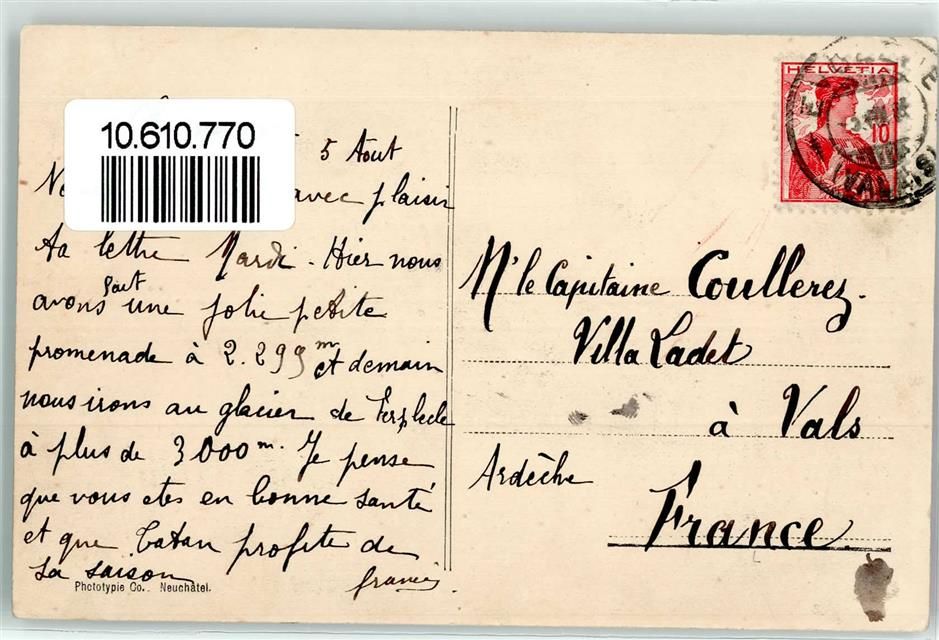 10.610.770
5 Aout
avec plaisir
ta lettre Mardi. Hier nous
avons fait une jolie petite
promenade à 2.299 m et demain
nous irons au glacier de Ferpècle
à plus de 3000 m. Je pense
que vous etes en bonne santé
et que profite de
sa saison
Francis.
Phototypie Co. Neuchâtel.
HELVETIA
10
(VALAIS)
Mr le Capitaine Coullerez.
Villa Ladet
à Vals
Ardèche
France